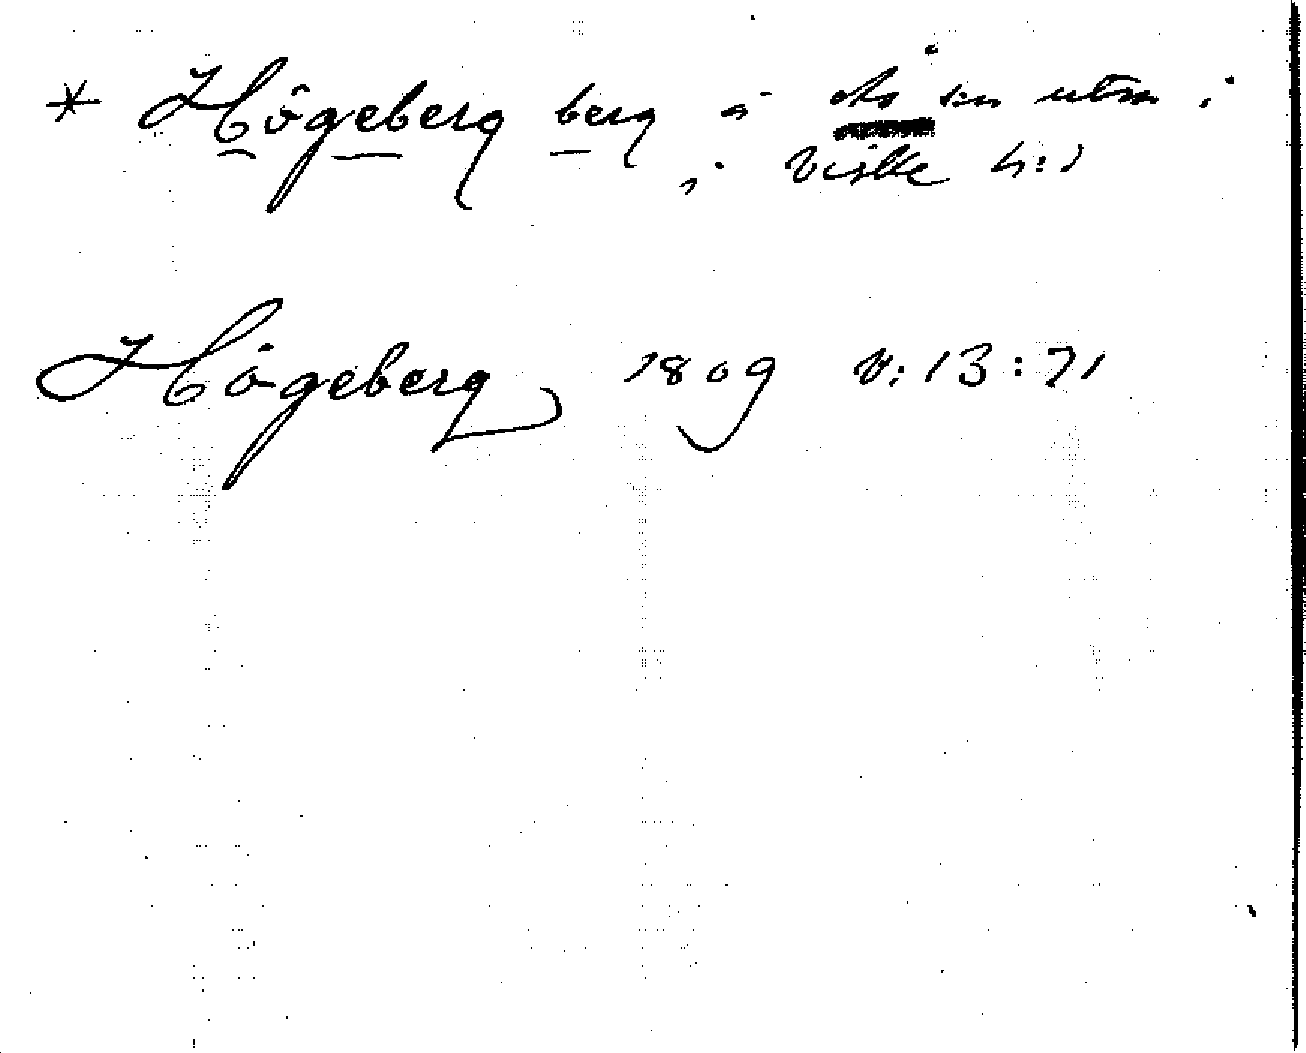 * Högeberg berg å
i Viske h:d
Högeberg 1809 V: 13: 71